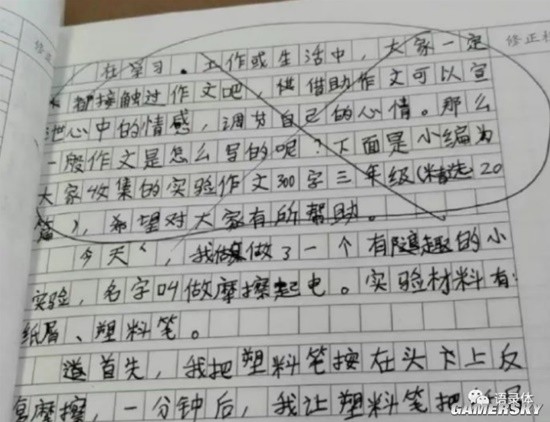 修正
修正栏
在学习、工作或生活中,大家一定
都接触过作文吧,借助作文可以宣
泄心中的情感,调节自己的心情。那么
一般作文是怎么写的呢?下面是小编为
大家收集的实验作文300字三年级(精选20
篇),希望对大家有所帮助。
今天,我做了一个有趣的小
实验,名字叫做摩擦起电。实验材料有:
纸屑、塑料笔。
首先,我把塑料笔按在头上反
复摩擦,一分钟后,我让塑料笔把
语录体
GAMERSKY